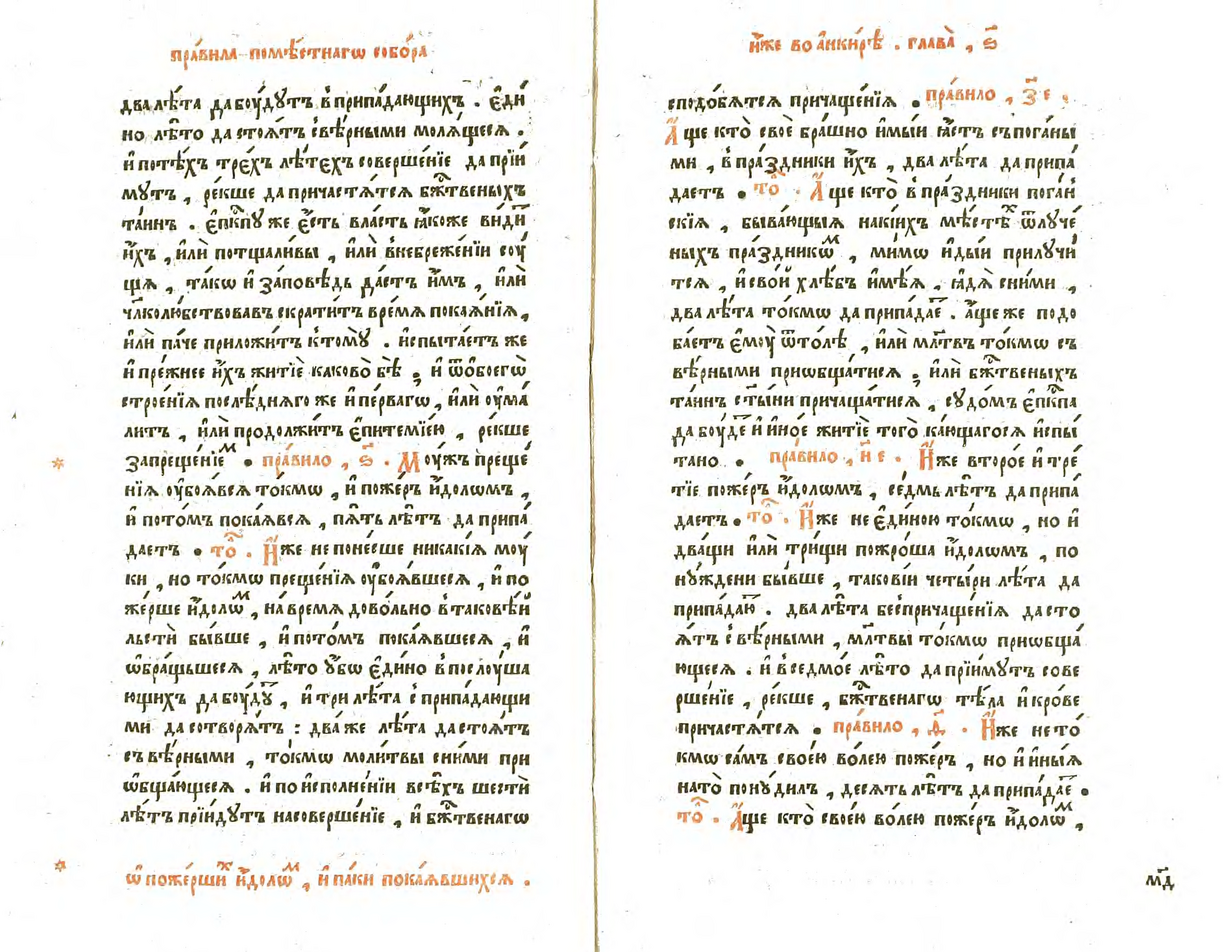 пра́вила помѣ́стнагѡ собо́ра
два лѣ́та да боу́дутъ в̾ припа́дающихъ . є҆ди́
но лѣ́то да стоѧ́тъ с̾ вѣ́рными молѧ́щесѧ .
и҆ по тѣ́хъ тре́хъ лѣ́тѣхъ соверше́нїе да прїи́
мутъ , ре́кше да причастѧ́тсѧ бж҃твеныхъ
та́инъ . є҆пⷭ҇кпу же є҆́сть вла́сть ꙗ҆́коже ви́дитъ
и҆́хъ , и҆лѝ потщали́вы , и҆лѝ в̾ небреже́нїи соу́
щѧ , та́кѡ и҆ за́повѣдь дае́тъ и҆̀мъ , и҆лѝ
чл҃колю́бствовавъ сократи́тъ вре́мѧ покаѧ́нїѧ ,
и҆лѝ па́че приложи́тъ к̾ тому̀ . и҆спыта́етъ же
и҆ пре́жнее и҆́хъ житїѐ каково̀ бѣ̀ ; и҆ ѿ ѻ҆боегѡ̀
строе́нїѧ послѣ́днѧго же и҆ пе́рвагѡ , и҆лѝ оу҆ма
ли́тъ , и҆лѝ продолжи́тъ є҆питемїе́ю , ре́кше
запреще́нїеⷨ . пра́вило , ѕ҃ . Моу́жъ преще́
нїѧ оу҆боѧ́всѧ то́кмѡ , и҆ поже́ръ и҆́долѡмъ ,
и҆ пото́мъ покаѧ́всѧ , пѧ́ть лѣ́тъ да припа́
даетъ . то̑ . И҆̀же не поне́сше никакі́ѧ моу́
ки , но то́кмѡ преще́нїѧ оу҆боѧ́вшесѧ , и҆ по
же́рше и҆́долѡⷨ , на вре́мѧ дово́льно в̾ таковѣ́й
льстѝ бы́вше , и҆ пото́мъ покаѧ́вшесѧ , и҆
ѡ҆бра́щьшесѧ , лѣ́то ᲂу҆́бѡ є҆ди́но в̾ послоу́ша
ющихъ да боу́дуⷮ , и҆ три лѣ́та с̾ припа́дающи
ми да сотворѧ́тъ : два́ же лѣ́та да стоѧ́тъ
съ вѣ́рными , то́кмѡ моли́твы с ни́ми при
ѡ҆бща́ющесѧ . и҆ по и҆сполне́нїи всѣ́хъ шестѝ
лѣ́тъ прїи́дутъ на соверше́нїе , и҆ бж҃твенагѡ
ѡ҆ поже́ршиⷯ и҆́долѡⷨ , и҆ па́ки покаѧ́вшихсѧ .
и҆́же во а҆нки́рѣ . глава̀ , ѕ҃
сподо́бѧтсѧ причаще́нїѧ . пра́вило , з҃ е .
А҆́ще кто̀ своѐ бра́шно и҆мы́й ꙗ҆́стъ съ пога́ны
ми , в̾ пра́здники и҆́хъ , два лѣ́та да припа́
даетъ . то̑ . А҆́ще кто̀ в̾ пра́здники пога́н
скїѧ , быва́ющыѧ на ки́ихъ мѣ́стѣⷯ ѿлуче́
ныхъ пра́здникѡⷨ , ми́мѡ и҆ды́й прилучи́
тсѧ , и҆ сво́й хлѣ́бъ и҆мѣ́ѧ , ꙗ҆ды̀ с ни́ми ,
два лѣ́та то́кмѡ да припа́даеⷮ . а҆́ще же подо
ба́етъ є҆моу̀ ѿто́лѣ , и҆лѝ мл҃твъ то́кмѡ съ
вѣ́рными приѡбща́тисѧ ; и҆лѝ бж҃твеныхъ
та́инъ с ты́ми причаща́тисѧ , судо́мъ є҆пⷭ҇кпа
да боу́деⷮ и҆ и҆но́е житїѐ того̀ ка́ющагосѧ и҆спы́
тано . пра́вило , и҃ е . И҆̀же второ́е и҆ тре́
тїе поже́ръ и҆́долѡмъ , се́дмь лѣ́тъ да припа́
даетъ . то̑ . И҆̀же не є҆ди́ною то́кмѡ , но и҆
два́щи и҆лѝ три́щи пожро́ша и҆́долѡмъ , по
ну́ждени бы́вше , такові́и четы́ри лѣ́та да
припа́даюⷮ . два лѣ́та бес̾ причаще́нїѧ да сто
ѧ́тъ с̾ вѣ́рными , мл҃твы то́кмѡ приѡбща́
ющесѧ . и҆ в̾ седмо́е лѣ́то да прїи́мутъ сове
рше́нїе , ре́кше , бж҃твенагѡ тѣ́ла и҆ кро́ве
причастѧ́тсѧ . пра́вило , д҃ . И҆̀же не то́
кмѡ са́мъ свое́ю во́лею поже́ръ , но и҆ и҆ны́ѧ
на то̀ пону́дилъ , де́сѧть лѣ́тъ да припа́даеⷮ .
то̑ . А҆́ще кто̀ свое́ю во́лею поже́ръ и҆́долѡⷨ ,
мд҃